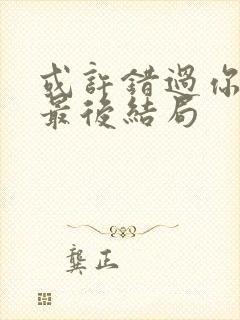 或許錯過你
最後結局
龔正